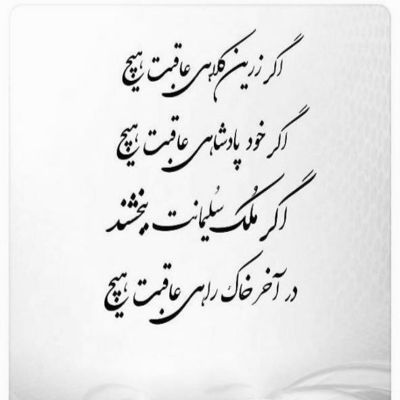 اگر زرین کلاهی عاقبت هیچ
اگر خود پادشاهی عاقبت هیچ
اگر مُلک سُلیمانت ببخشند
در آخر خاک راهی عاقبت هیچ